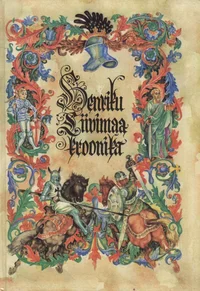 Henriku
Liivimaa
kroonika